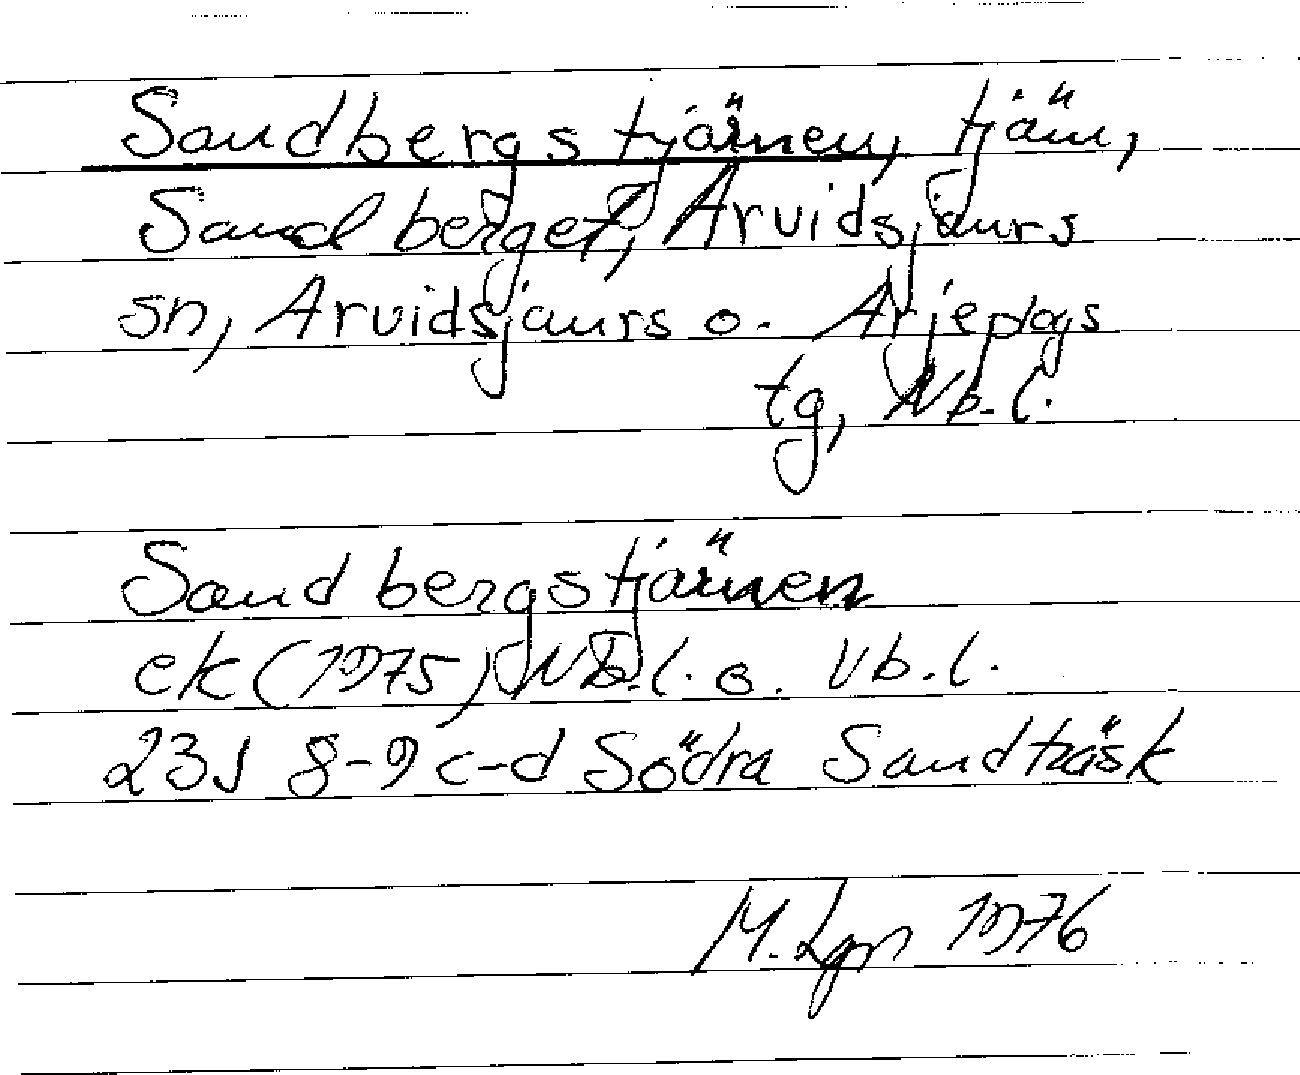 Sandbergstjärnen, tjärn,
Sandberget, Arvidsjaurs
sn, Arvidsjaurs o. Arjeplogs
tg, Nb.l.
Sandbergstjärnen
ek (1975) Nb.l. o. Vb.l.
23J 8-9 c-d Södra Sandträsk
M. Lgn 1976